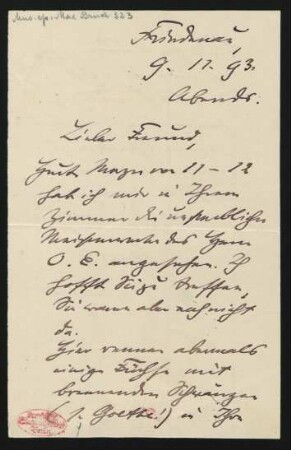 Mus. ep. Max Bruch 323
Friedenau,
9. 11. 93.
Abends.
Lieber Freund,
Heute Morgen von 11 – 12
hab ich mir in Ihrem
Zimmer die unsterblichen
Meisterwerke des Herrn
O. E. angesehen. Ich
hoffte Sie zu treffen,
Sie waren aber noch nicht
da.
Hier rennen abermals
einige Füchse mit
brennenden Schwänzen
(s. Goethe!) in Ihre